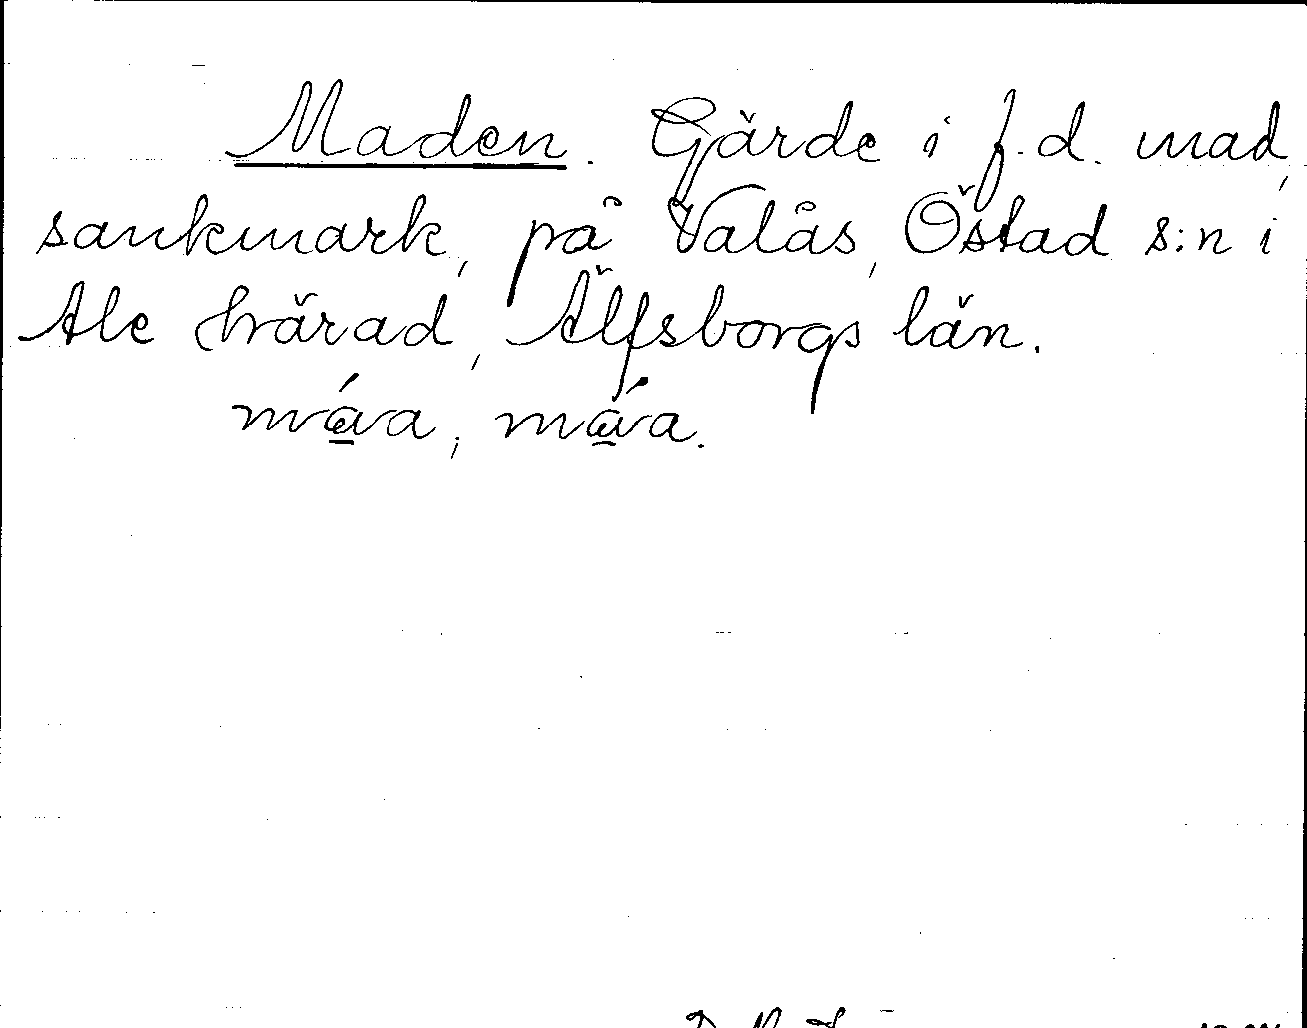 Maden. Gärde i f.d. mad,
sankmark, på Valås, Östad s:n i
Ale härad, Älfsborgs län.